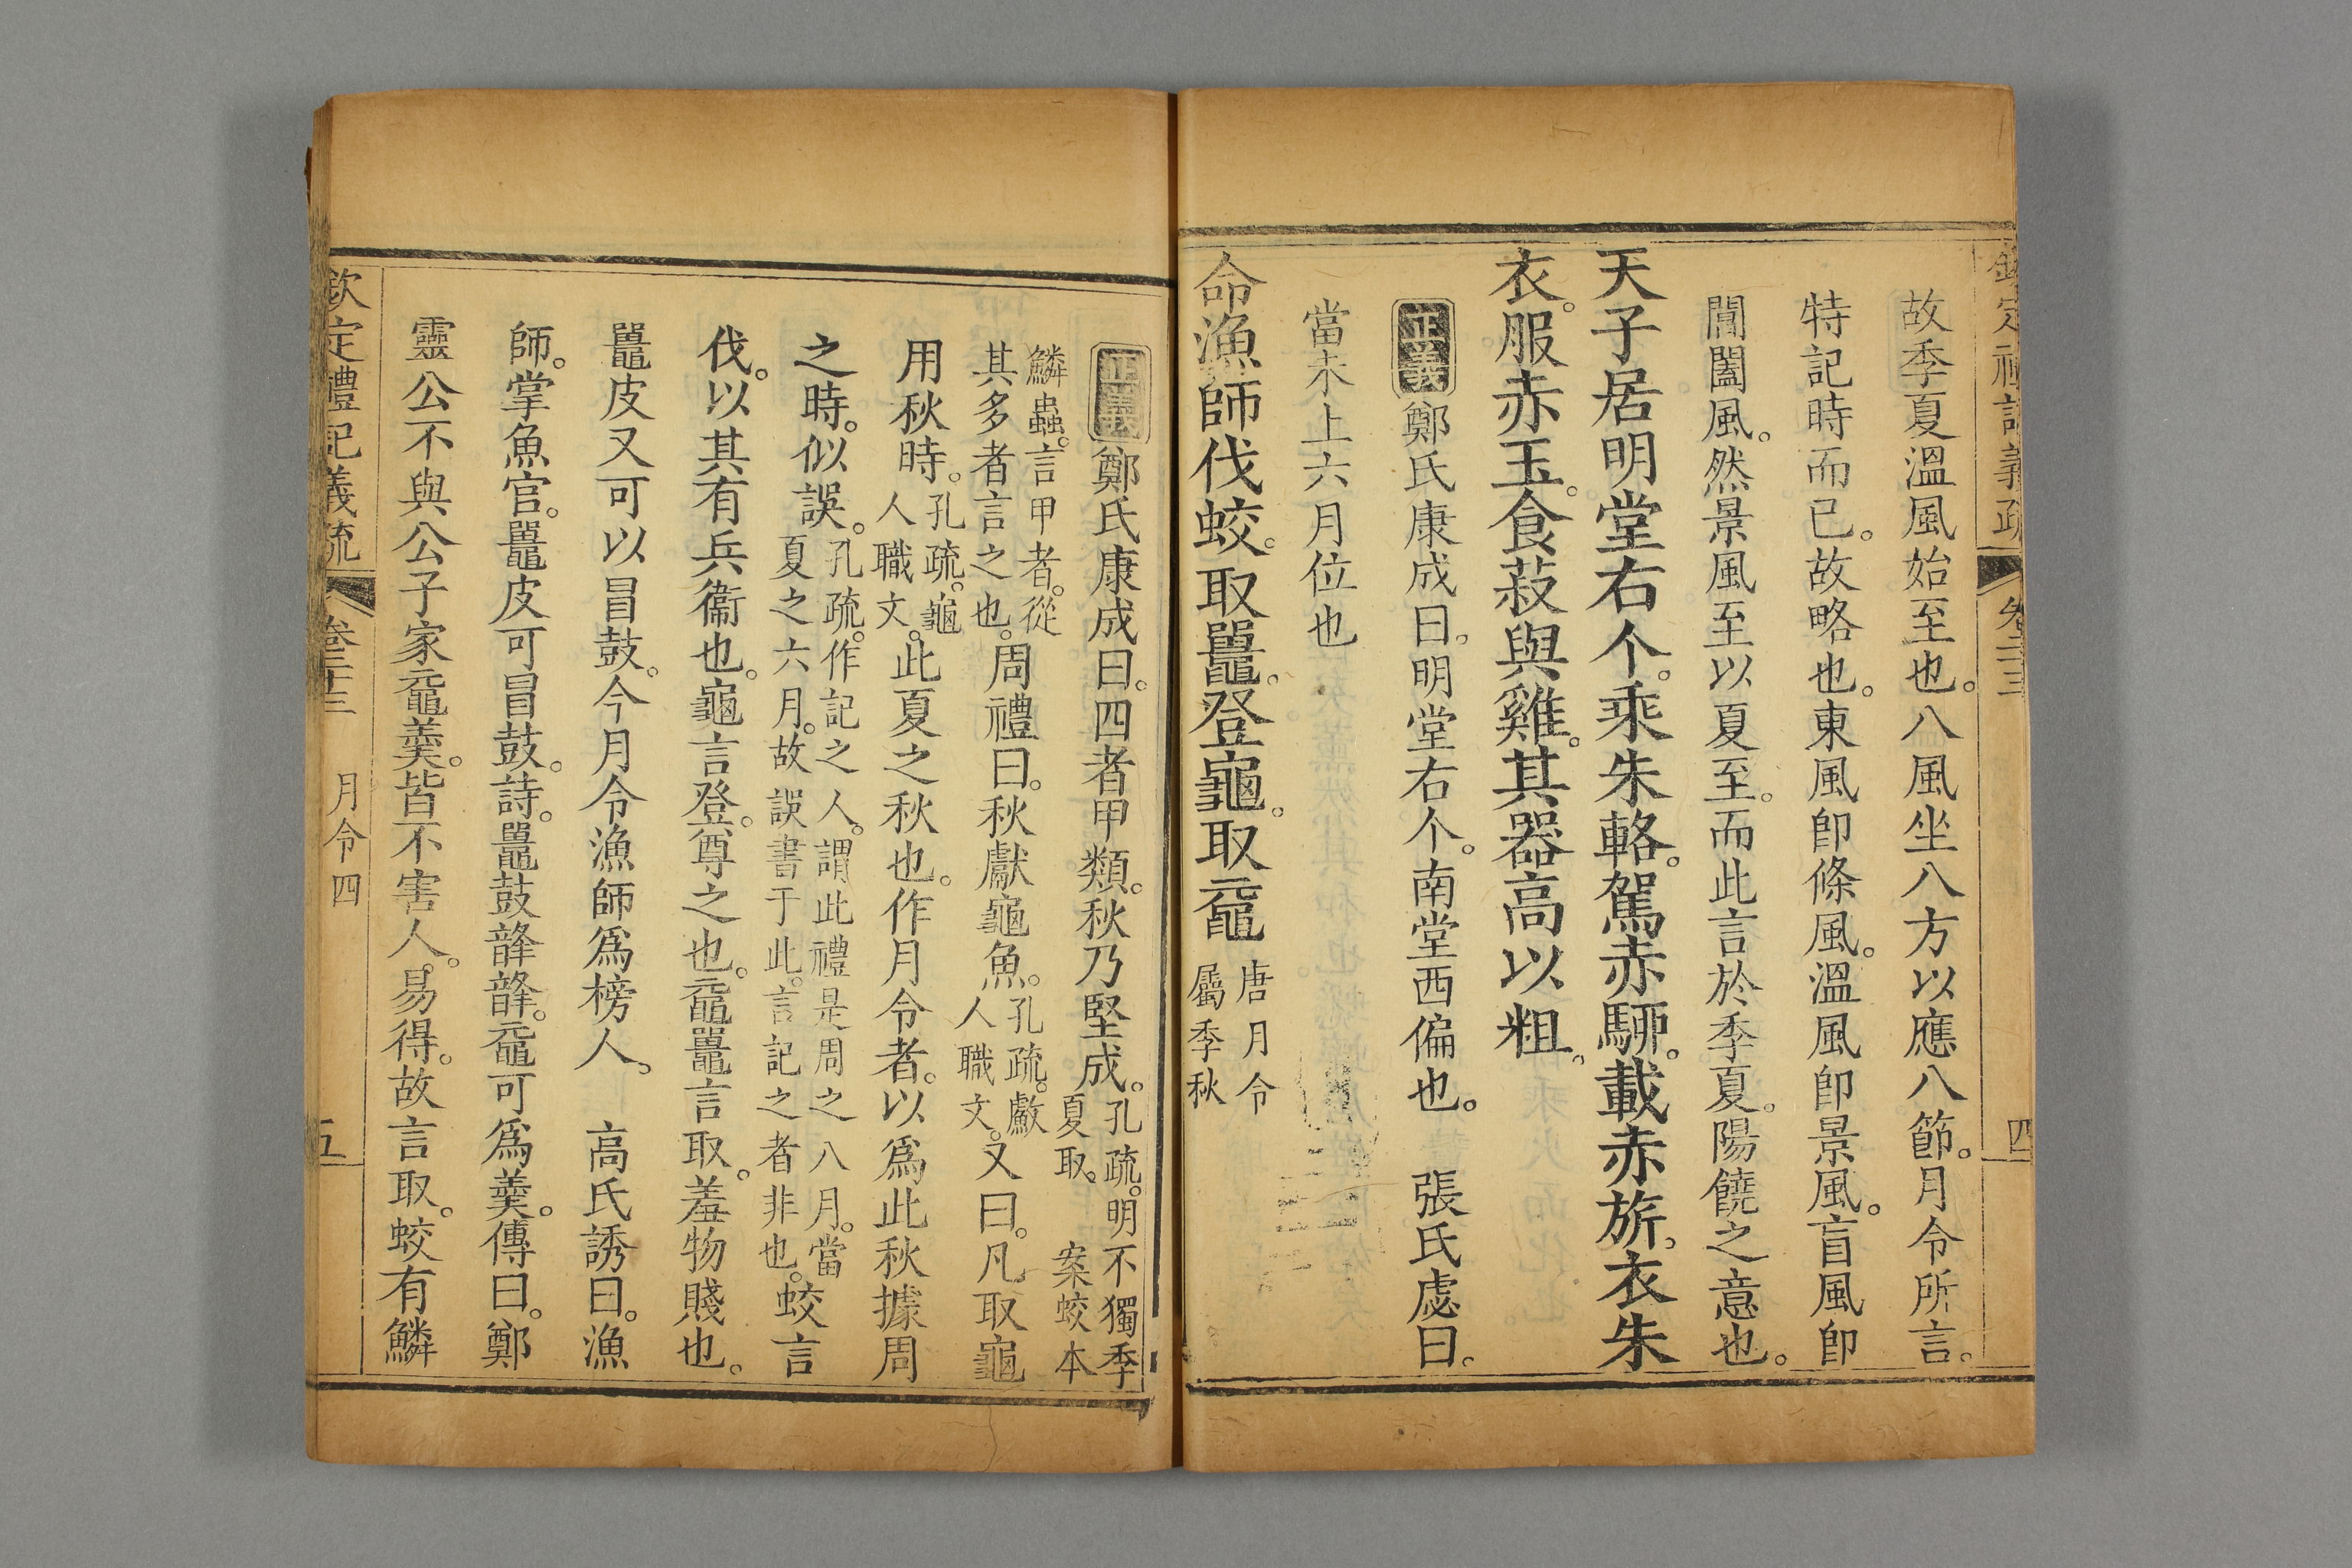 欽定禮記義疏 卷二十三 四
故季夏溫風始至也。八風坐八方以應八節。月令所言。
特記時而已。故略也。東風卽條風。溫風卽景風。盲風卽
閶闔風。然景風至以夏至。而此言於季夏。陽饒之意也。
天子居明堂右个。乘朱輅。駕赤駵。載赤旂。衣朱
衣。服赤玉。食菽與雞。其器高以粗。
正義 鄭氏康成曰。明堂右个。南堂西偏也。 張氏虙曰。
當未上六月位也
命漁師伐蛟。取鼉。登龜。取黿 唐月令屬季秋
正義 鄭氏康成曰。四者甲類。秋乃堅成。孔疏。明不獨季夏取。 案蛟本
鱗蟲。言甲者。從其多者言之也。周禮曰。秋獻龜魚。孔疏。䱷人職文。又曰。凡取龜
用秋時。孔疏。龜人職文。此夏之秋也。作月令者。以爲此秋據周
之時。似誤。孔疏。作記之人。謂此禮是周之八月。當夏之六月。故誤書于此。言記之者非也。蛟言
伐。以其有兵衞也。龜言登。尊之也。黿鼉言取。羞物賤也。
鼉皮又可以冒鼓。今月令漁師爲榜人。 高氏誘曰。漁
師。掌魚官。鼉皮可冒鼓。詩。鼉鼓韸韸。黿可爲羹。傳曰。鄭
靈公不與公子家黿羹。皆不害人。易得。故言取。蛟有鱗
欽定禮記義疏 卷二十三 月令四 五